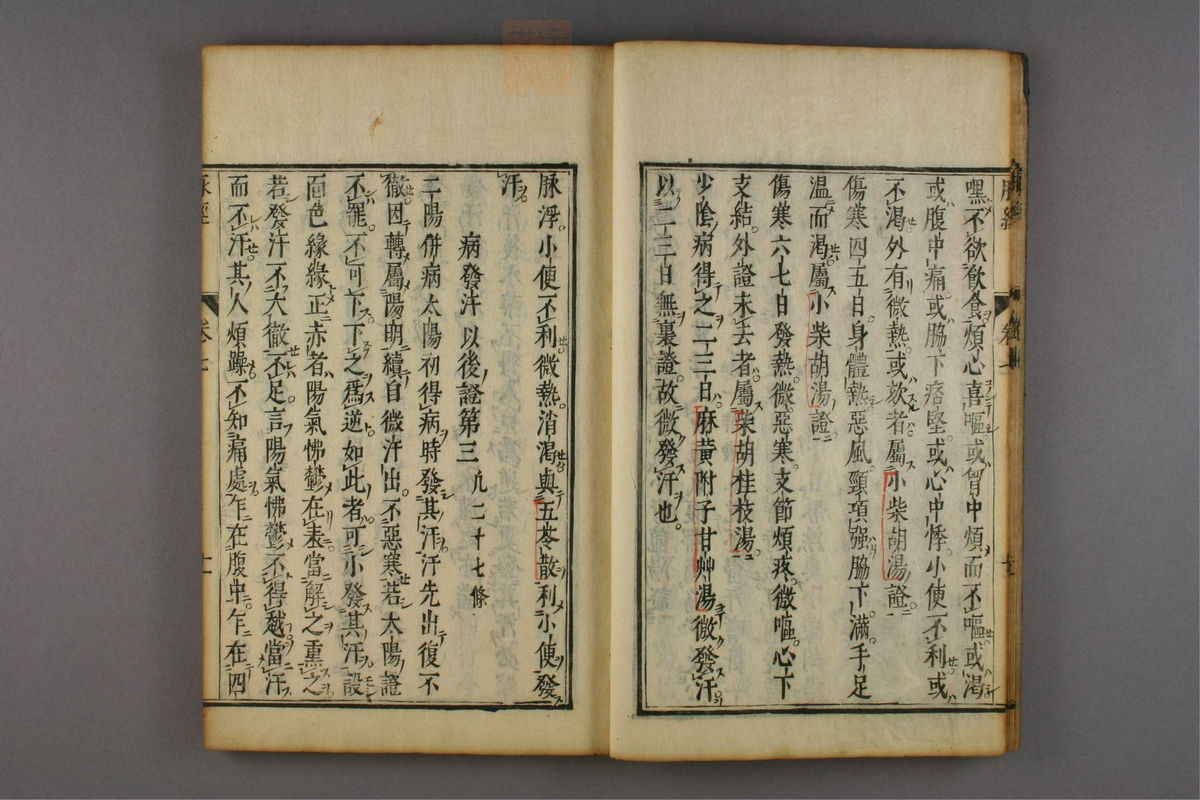 嘿不欲飮食煩心喜嘔或胷中煩而不嘔或渴
或腹中痛或脇下痞堅或心中悸小便不利或
不渴外有微熱或欬者屬小柴胡湯證
傷寒四五日身體熱惡風頸項强脇下滿手足
温而渴屬小柴胡湯證
傷寒六七日發熱微惡寒支節煩疼微嘔心下
支結外證未去者屬柴胡桂枝湯
少陰病得之二三日麻黄附子甘艸湯微發汗
以二三日無裏證故微發汗也
脉浮小便不利微熱消渴與五苓散利小便發
汗
病發汗以後證第三 凡二十七條
二陽併病太陽初得病時發其汗汗先出復不
徹因轉屬陽明續自微汗出不惡寒若太陽證
不罷不可下下之爲逆如此者可小發其汗設
面色緣緣正赤者陽氣怫鬱在表當解之熏之
若發汗不大徹不足言陽氣怫鬱不得越當汗
而不汗其人煩躁不知痛處乍在腹中乍在四
脉經
卷七
十一